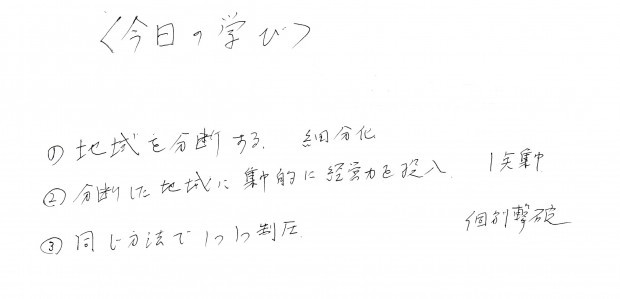 〈今日の学び〉
① 地域を分断する. 細分化
② 分断した地域に集中的に経営力を投入. 1点集中
③ 同じ方法で1つ1つ制圧.
個別撃破